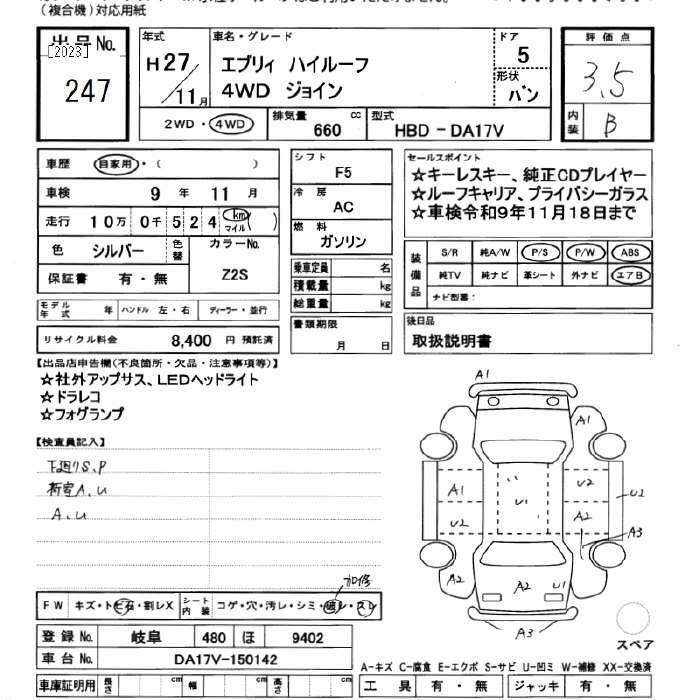 (複合機)対応用紙
出品No.
[2023]
247
年式
H27/11月
車名・グレード
エブリィ ハイルーフ
4WD ジョイン
ドア
5
形状
バン
評価点
3.5
内装
B
2WD・4WD
排気量
660 cc
型式
HBD-DA17V
車歴 自家用・( )
車検 9年 11月
走行 10万 0千 5 2 4 km マイル ( )
色 シルバー 色替
カラーNo.
Z2S
保証書 有・無
モデル年式 年 ハンドル 左・右 ディーラー・並行
リサイクル料金 8,400 円 預託済
シフト
F5
冷房
AC
燃料
ガソリン
乗車定員 名
積載量 kg
総重量 kg
書類期限
月 日
セールスポイント
☆キーレスキー、純正CDプレイヤー
☆ルーフキャリア、プライバシーガラス
☆車検令和9年11月18日まで
装備品
S/R 純A/W P/S P/W ABS
純TV 純ナビ 革シート 外ナビ エアB
ナビ型番:
後日品
取扱説明書
【出品店申告欄(不良箇所・欠品・注意事項等)】
☆社外アップサス、LEDヘッドライト
☆ドラレコ
☆フォグランプ
【検査員記入】
下廻りS.P
荷室A.U
A.U
A1
A1
A1
U2
U1
U2
U2
A2
A3
A2
A2
U1
A2
A3
スペア
加修
FW キズ・トビ石・割レX
シート内装 コゲ・穴・汚レ・シミ・破レ・スレ
登録No. 岐阜 480 ほ 9402
車台No. DA17V-150142
車庫証明用 長さ cm 幅 cm 高さ cm
A-キズ C-腐食 E-エクボ S-サビ U-凹ミ W-補修 XX-交換済
工具 有・無 ジャッキ 有・無